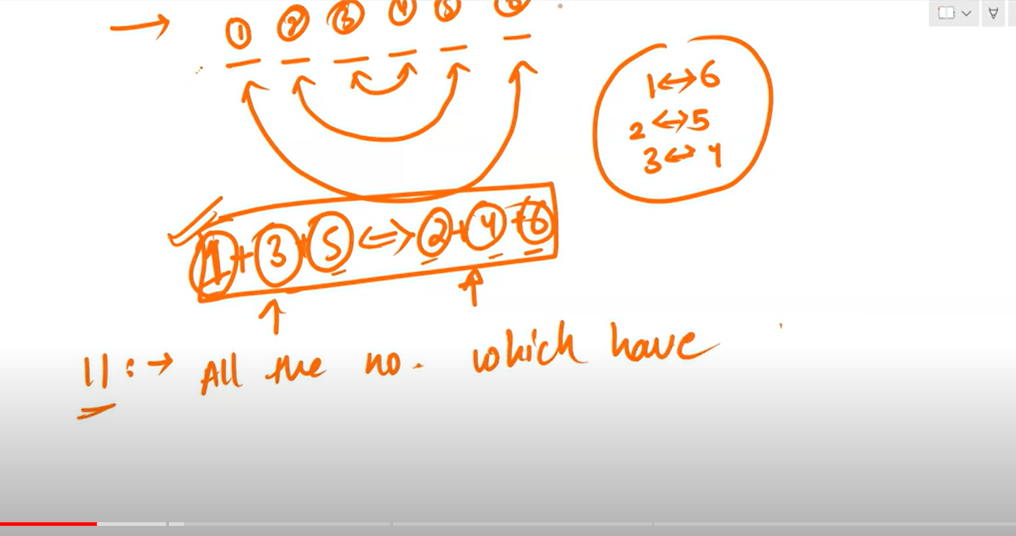 → 1 2 3 4 5 6
1↔6
2↔5
3↔4
1+3+5 ⇔ 2+4+6
11:→ All the no. which have